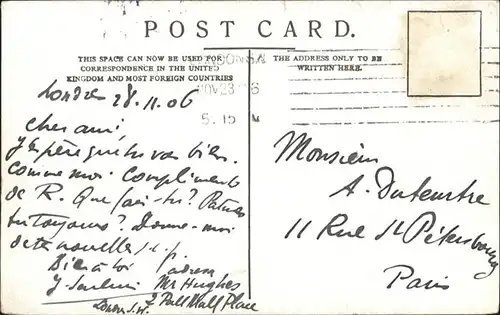 POST CARD.
THIS SPACE CAN NOW BE USED FOR
CORRESPONDENCE IN THE UNITED
KINGDOM AND MOST FOREIGN COUNTRIES
THE ADDRESS ONLY TO BE
WRITTEN HERE.
NOV 28 06
5.15
Londres 28.11.06
Cher ami,
J'espère que tu vas bien.
comme moi. Compliments
de R. Que fais-tu?
toujours? Donne-moi
de tes nouvelles s.t.p.
Bien à toi
adresse
Mr Hughes
2 Pall Mall Place
London S.W.
Monsieur
A. Duteurtre
11 Rue St Pétersbourg
Paris